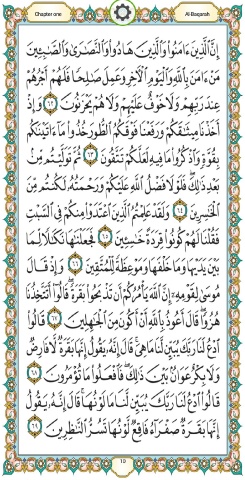 Chapter one
Al-Baqarah
إِنَّ ٱلَّذِينَ ءَامَنُوا۟ وَٱلَّذِينَ هَادُوا۟ وَٱلنَّصَٰرَىٰ وَٱلصَّٰبِـِٔينَ
مَنْ ءَامَنَ بِٱللَّهِ وَٱلْيَوْمِ ٱلْءَاخِرِ وَعَمِلَ صَٰلِحًا فَلَهُمْ أَجْرُهُمْ
عِندَ رَبِّهِمْ وَلَا خَوْفٌ عَلَيْهِمْ وَلَا هُمْ يَحْزَنُونَ ٦٢ وَإِذْ
أَخَذْنَا مِيثَٰقَكُمْ وَرَفَعْنَا فَوْقَكُمُ ٱلطُّورَ خُذُوا۟ مَآ ءَاتَيْنَٰكُم
بِقُوَّةٍ وَٱذْكُرُوا۟ مَا فِيهِ لَعَلَّكُمْ تَتَّقُونَ ٦٣ ثُمَّ تَوَلَّيْتُم مِّنۢ
بَعْدِ ذَٰلِكَ ۖ فَلَوْلَا فَضْلُ ٱللَّهِ عَلَيْكُمْ وَرَحْمَتُهُۥ لَكُنتُم مِّنَ
ٱلْخَٰسِرِينَ ٦٤ وَلَقَدْ عَلِمْتُمُ ٱلَّذِينَ ٱعْتَدَوْا۟ مِنكُمْ فِى ٱلسَّبْتِ
فَقُلْنَا لَهُمْ كُونُوا۟ قِرَدَةً خَٰسِـِٔينَ ٦٥ فَجَعَلْنَٰهَا نَكَٰلًا لِّمَا
بَيْنَ يَدَيْهَا وَمَا خَلْفَهَا وَمَوْعِظَةً لِّلْمُتَّقِينَ ٦٦ وَإِذْ قَالَ
مُوسَىٰ لِقَوْمِهِۦٓ إِنَّ ٱللَّهَ يَأْمُرُكُمْ أَن تَذْبَحُوا۟ بَقَرَةً ۖ قَالُوٓا۟ أَتَتَّخِذُنَا
هُزُوًا ۖ قَالَ أَعُوذُ بِٱللَّهِ أَنْ أَكُونَ مِنَ ٱلْجَٰهِلِينَ ٦٧ قَالُوا۟
ٱدْعُ لَنَا رَبَّكَ يُبَيِّن لَّنَا مَا هِىَ ۚ قَالَ إِنَّهُۥ يَقُولُ إِنَّهَا بَقَرَةٌ لَّا فَارِضٌ
وَلَا بِكْرٌ عَوَانٌۢ بَيْنَ ذَٰلِكَ ۖ فَٱفْعَلُوا۟ مَا تُؤْمَرُونَ ٦٨
قَالُوا۟ ٱدْعُ لَنَا رَبَّكَ يُبَيِّن لَّنَا مَا لَوْنُهَا ۚ قَالَ إِنَّهُۥ يَقُولُ
إِنَّهَا بَقَرَةٌ صَفْرَآءُ فَاقِعٌ لَّوْنُهَا تَسُرُّ ٱلنَّٰظِرِينَ ٦٩
10